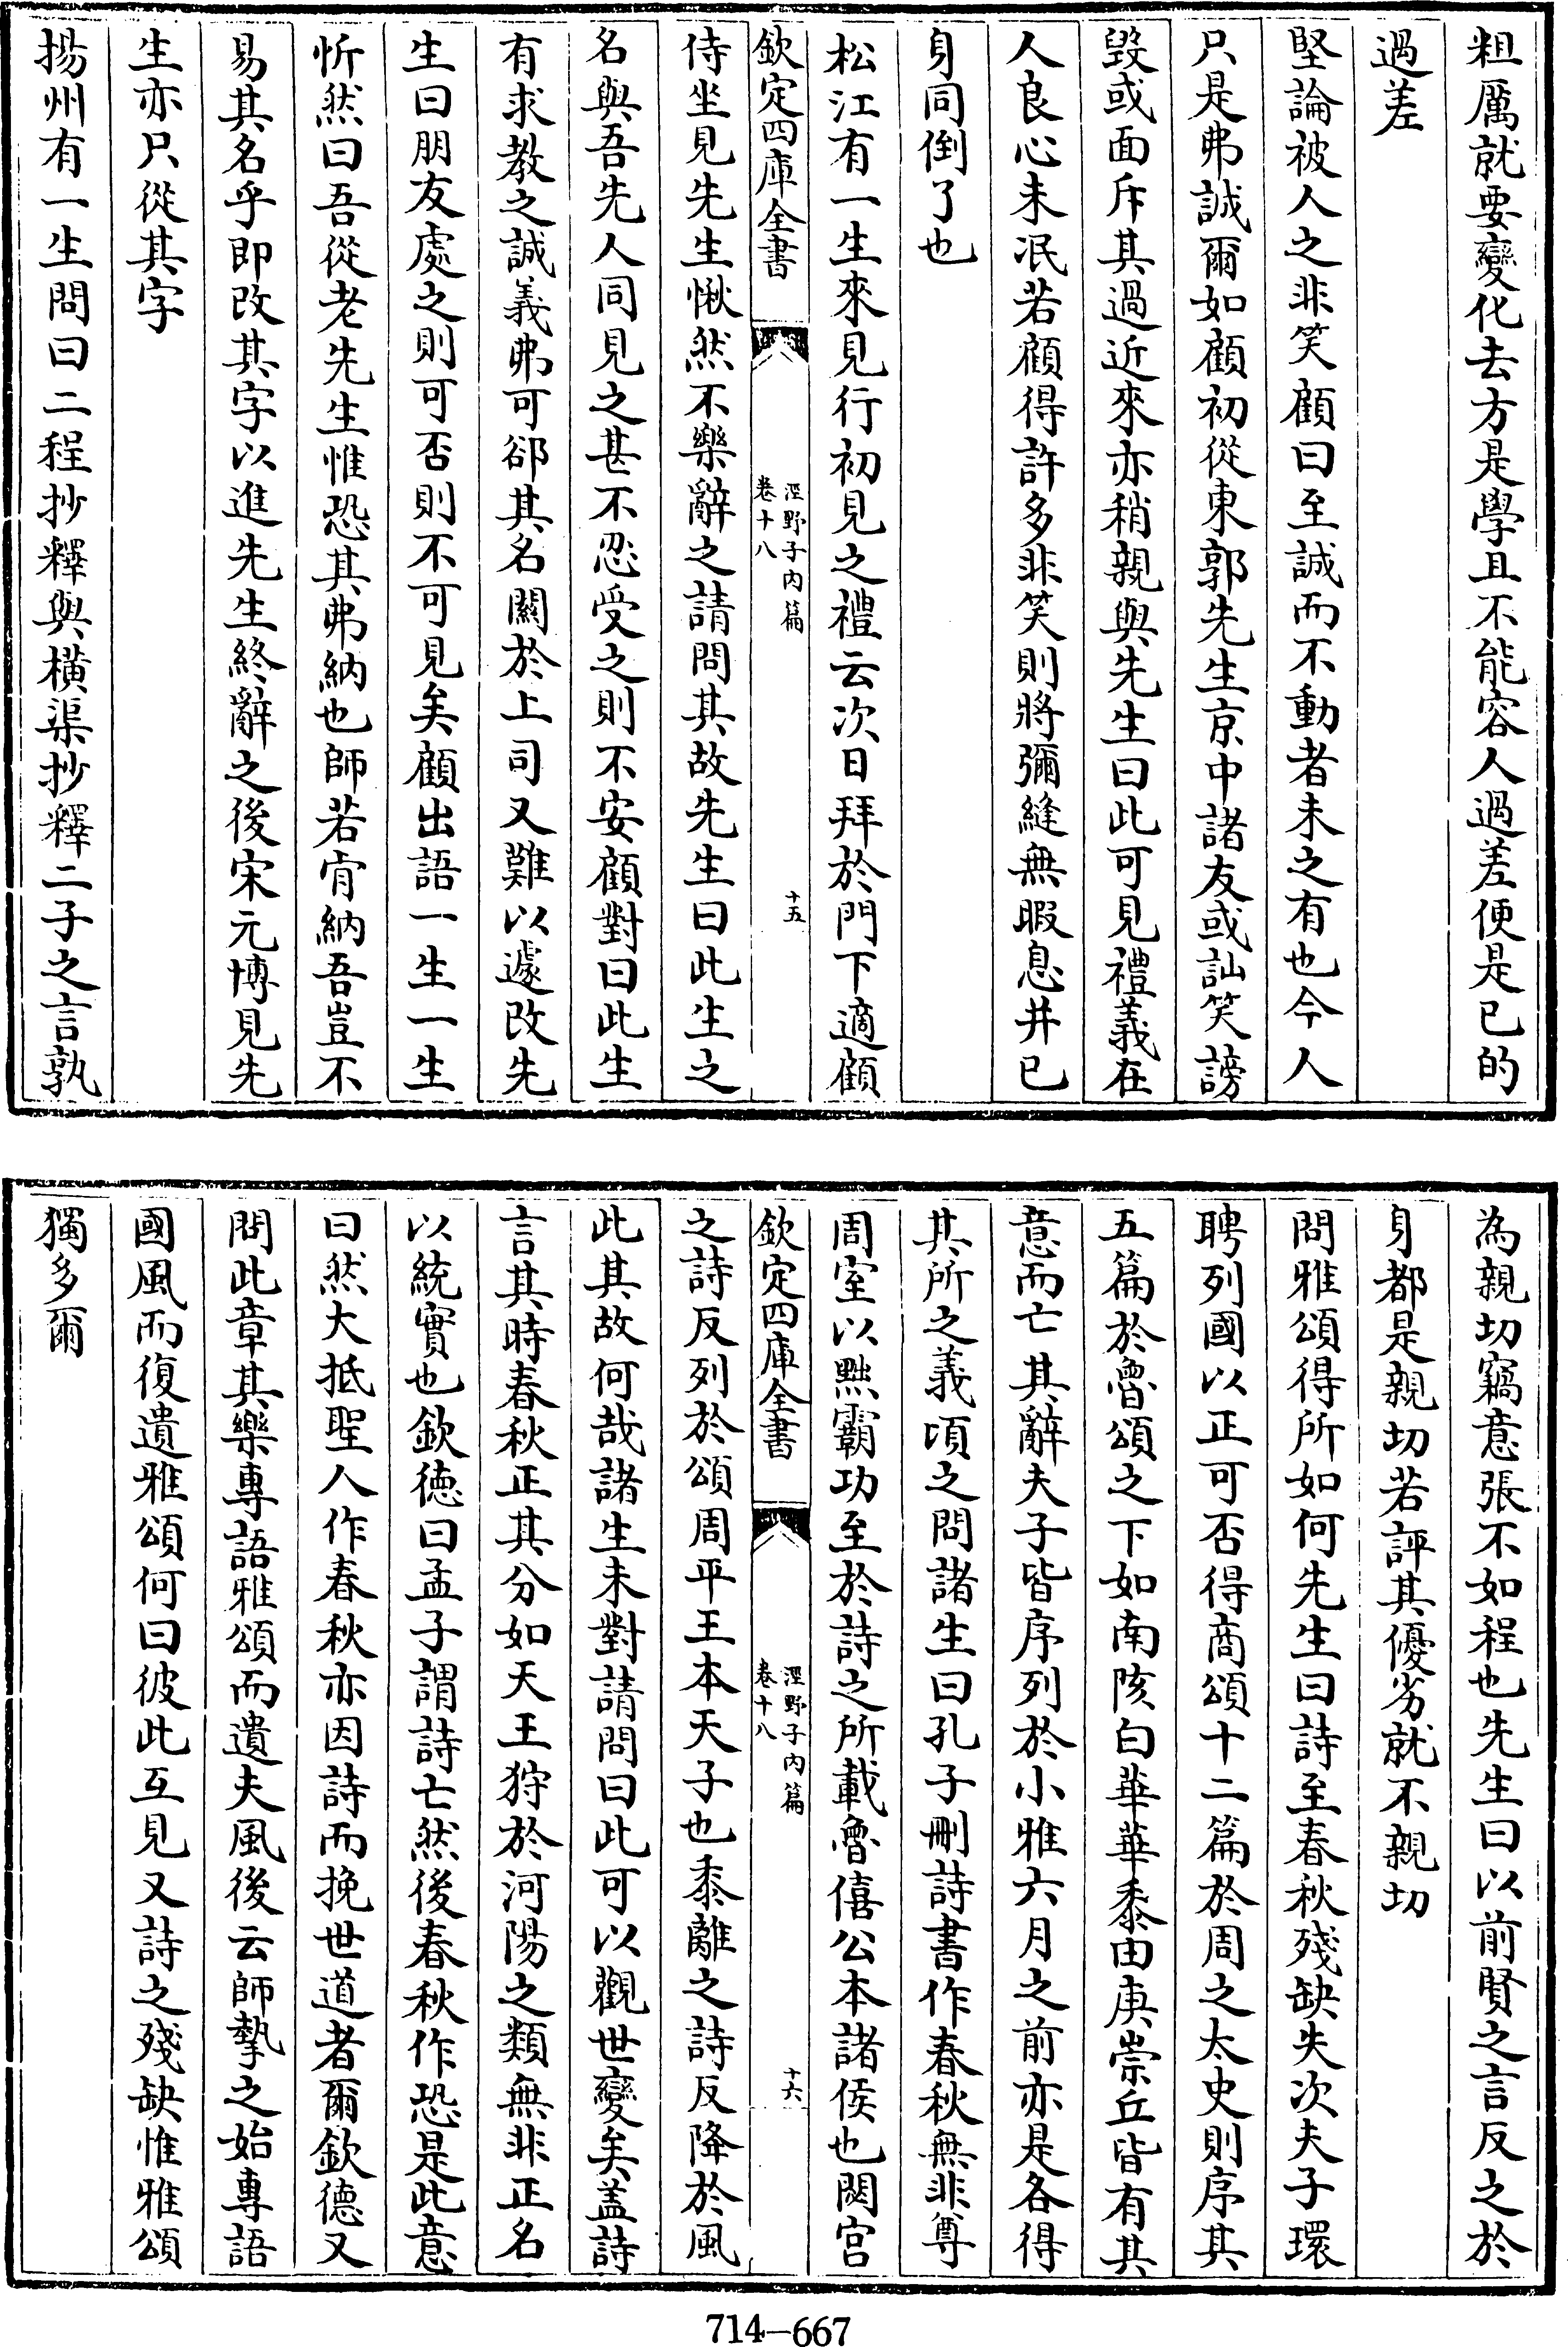 粗厲就要變化去方是學且不能容人過差便是已的
過差
堅論被人之非笑顧曰至誠而不動者未之有也今人
只是弗誠爾如顧初從東郭先生京中諸友或訕笑謗
毀或面斥其過近來亦稍親與先生曰此可見禮義在
人良心未冺若顧得許多非笑則將彌縫無暇息并已
身同倒了也
松江有一生來見行初見之禮云次日拜於門下適顧
欽定四庫全書
涇野子內篇
卷十八
十五
侍坐見先生愀然不樂辭之請問其故先生曰此生之
名與吾先人同見之甚不忍受之則不安顧對曰此生
有求教之誠義弗可郤其名關於上司又難以遽改先
生曰朋友處之則可否則不可見矣顧出語一生一生
忻然曰吾從老先生惟恐其弗納也師若肯納吾豈不
易其名乎即改其字以進先生終辭之後宋元博見先
生亦只從其字
揚州有一生問曰二程抄釋與橫渠抄釋二子之言孰
為親切竊意張不如程也先生曰以前賢之言反之於
身都是親切若評其優劣就不親切
問雅頌得所如何先生曰詩至春秋殘缺失次夫子環
聘列國以正可否得商頌十二篇於周之太史則序其
五篇於魯頌之下如南陔白華華黍由庚崇丘皆有其
意而亡其辭夫子皆序列於小雅六月之前亦是各得
其所之義頃之問諸生曰孔子刪詩書作春秋無非尊
周室以黜霸功至於詩之所載魯僖公本諸侯也閟宮
欽定四庫全書
涇野子內篇
卷十八
十六
之詩反列於頌周平王本天子也黍離之詩反降於風
此其故何哉諸生未對請問曰此可以觀世變矣盖詩
言其時春秋正其分如天王狩於河陽之類無非正名
以統實也欽德曰孟子謂詩亡然後春秋作恐是此意
曰然大抵聖人作春秋亦因詩而挽世道者爾欽德又
問此章其樂專語雅頌而遺夫風後云師摯之始專語
國風而復遺雅頌何曰彼此互見又詩之殘缺惟雅頌
獨多爾
714-667